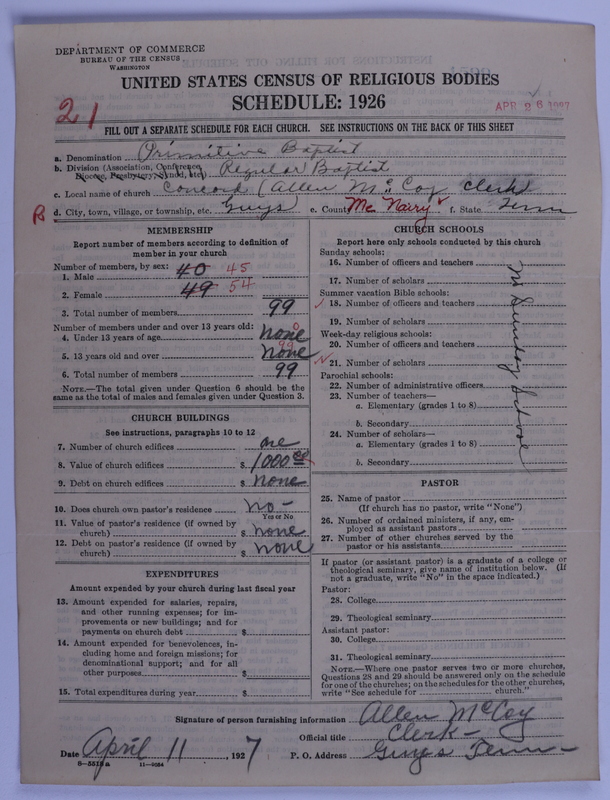 DEPARTMENT OF COMMERCE
BUREAU OF THE CENSUS
WASHINGTON
UNITED STATES CENSUS OF RELIGIOUS BODIES
SCHEDULE: 1926
21
APR 26 1927
FILL OUT A SEPARATE SCHEDULE FOR EACH CHURCH. SEE INSTRUCTIONS ON THE BACK OF THIS SHEET
a. Denomination Primitive Baptist
b. Division (Association, Conference, Diocese, Presbytery, Synod, etc.) Regular Baptist
c. Local name of church Concord (Allen McCoy Clerk
d. City, town, village, or township, etc. Guys e. County McNairy f. State Tenn
MEMBERSHIP
Report number of members according to definition of
member in your church
Number of members, by sex:
1. Male 40 45
2. Female 49 54
3. Total number of members 99
Number of members under and over 13 years old:
4. Under 13 years of age none 0
5. 13 years old and over none 99
6. Total number of members 99
NOTE.—The total given under Question 6 should be the
same as the total of males and females given under Question 3.
CHURCH BUILDINGS
See instructions, paragraphs 10 to 12
7. Number of church edifices one
8. Value of church edifices $ 1000.00
9. Debt on church edifices $ none
10. Does church own pastor's residence no -
Yes or No
11. Value of pastor's residence (if owned by
church) $ none
12. Debt on pastor's residence (if owned by
church) $ none
EXPENDITURES
Amount expended by your church during last fiscal year
13. Amount expended for salaries, repairs,
and other running expenses; for im-
provements or new buildings; and for
payments on church debt $
14. Amount expended for benevolences, in-
cluding home and foreign missions; for
denominational support; and for all
other purposes $
15. Total expenditures during year $
CHURCH SCHOOLS
Report here only schools conducted by this church
Sunday schools:
16. Number of officers and teachers
17. Number of scholars
Summer vacation Bible schools:
18. Number of officers and teachers
19. Number of scholars
Week-day religious schools:
20. Number of officers and teachers
21. Number of scholars
Parochial schools:
22. Number of administrative officers
23. Number of teachers—
a. Elementary (grades 1 to 8)
b. Secondary
24. Number of scholars—
a. Elementary (grades 1 to 8)
b. Secondary
No Sunday School
PASTOR
25. Name of pastor
(If church has no pastor, write "None")
26. Number of ordained ministers, if any, em-
ployed as assistant pastors
27. Number of other churches served by the
pastor or his assistants
If pastor (or assistant pastor) is a graduate of a college or
theological seminary, give name of institution below. (If
not a graduate, write "No" in the space indicated.)
Pastor:
28. College
29. Theological seminary
Assistant pastor:
30. College
31. Theological seminary
NOTE.—Where one pastor serves two or more churches,
Questions 28 and 29 should be answered only on the schedule
for one of the churches; on the schedules for the other churches,
write "See schedule for church."
Signature of person furnishing information Allen McCoy
Official title Clerk -
Date April 11, 1927 P. O. Address Guys Tenn -
8-5513a 11-9054